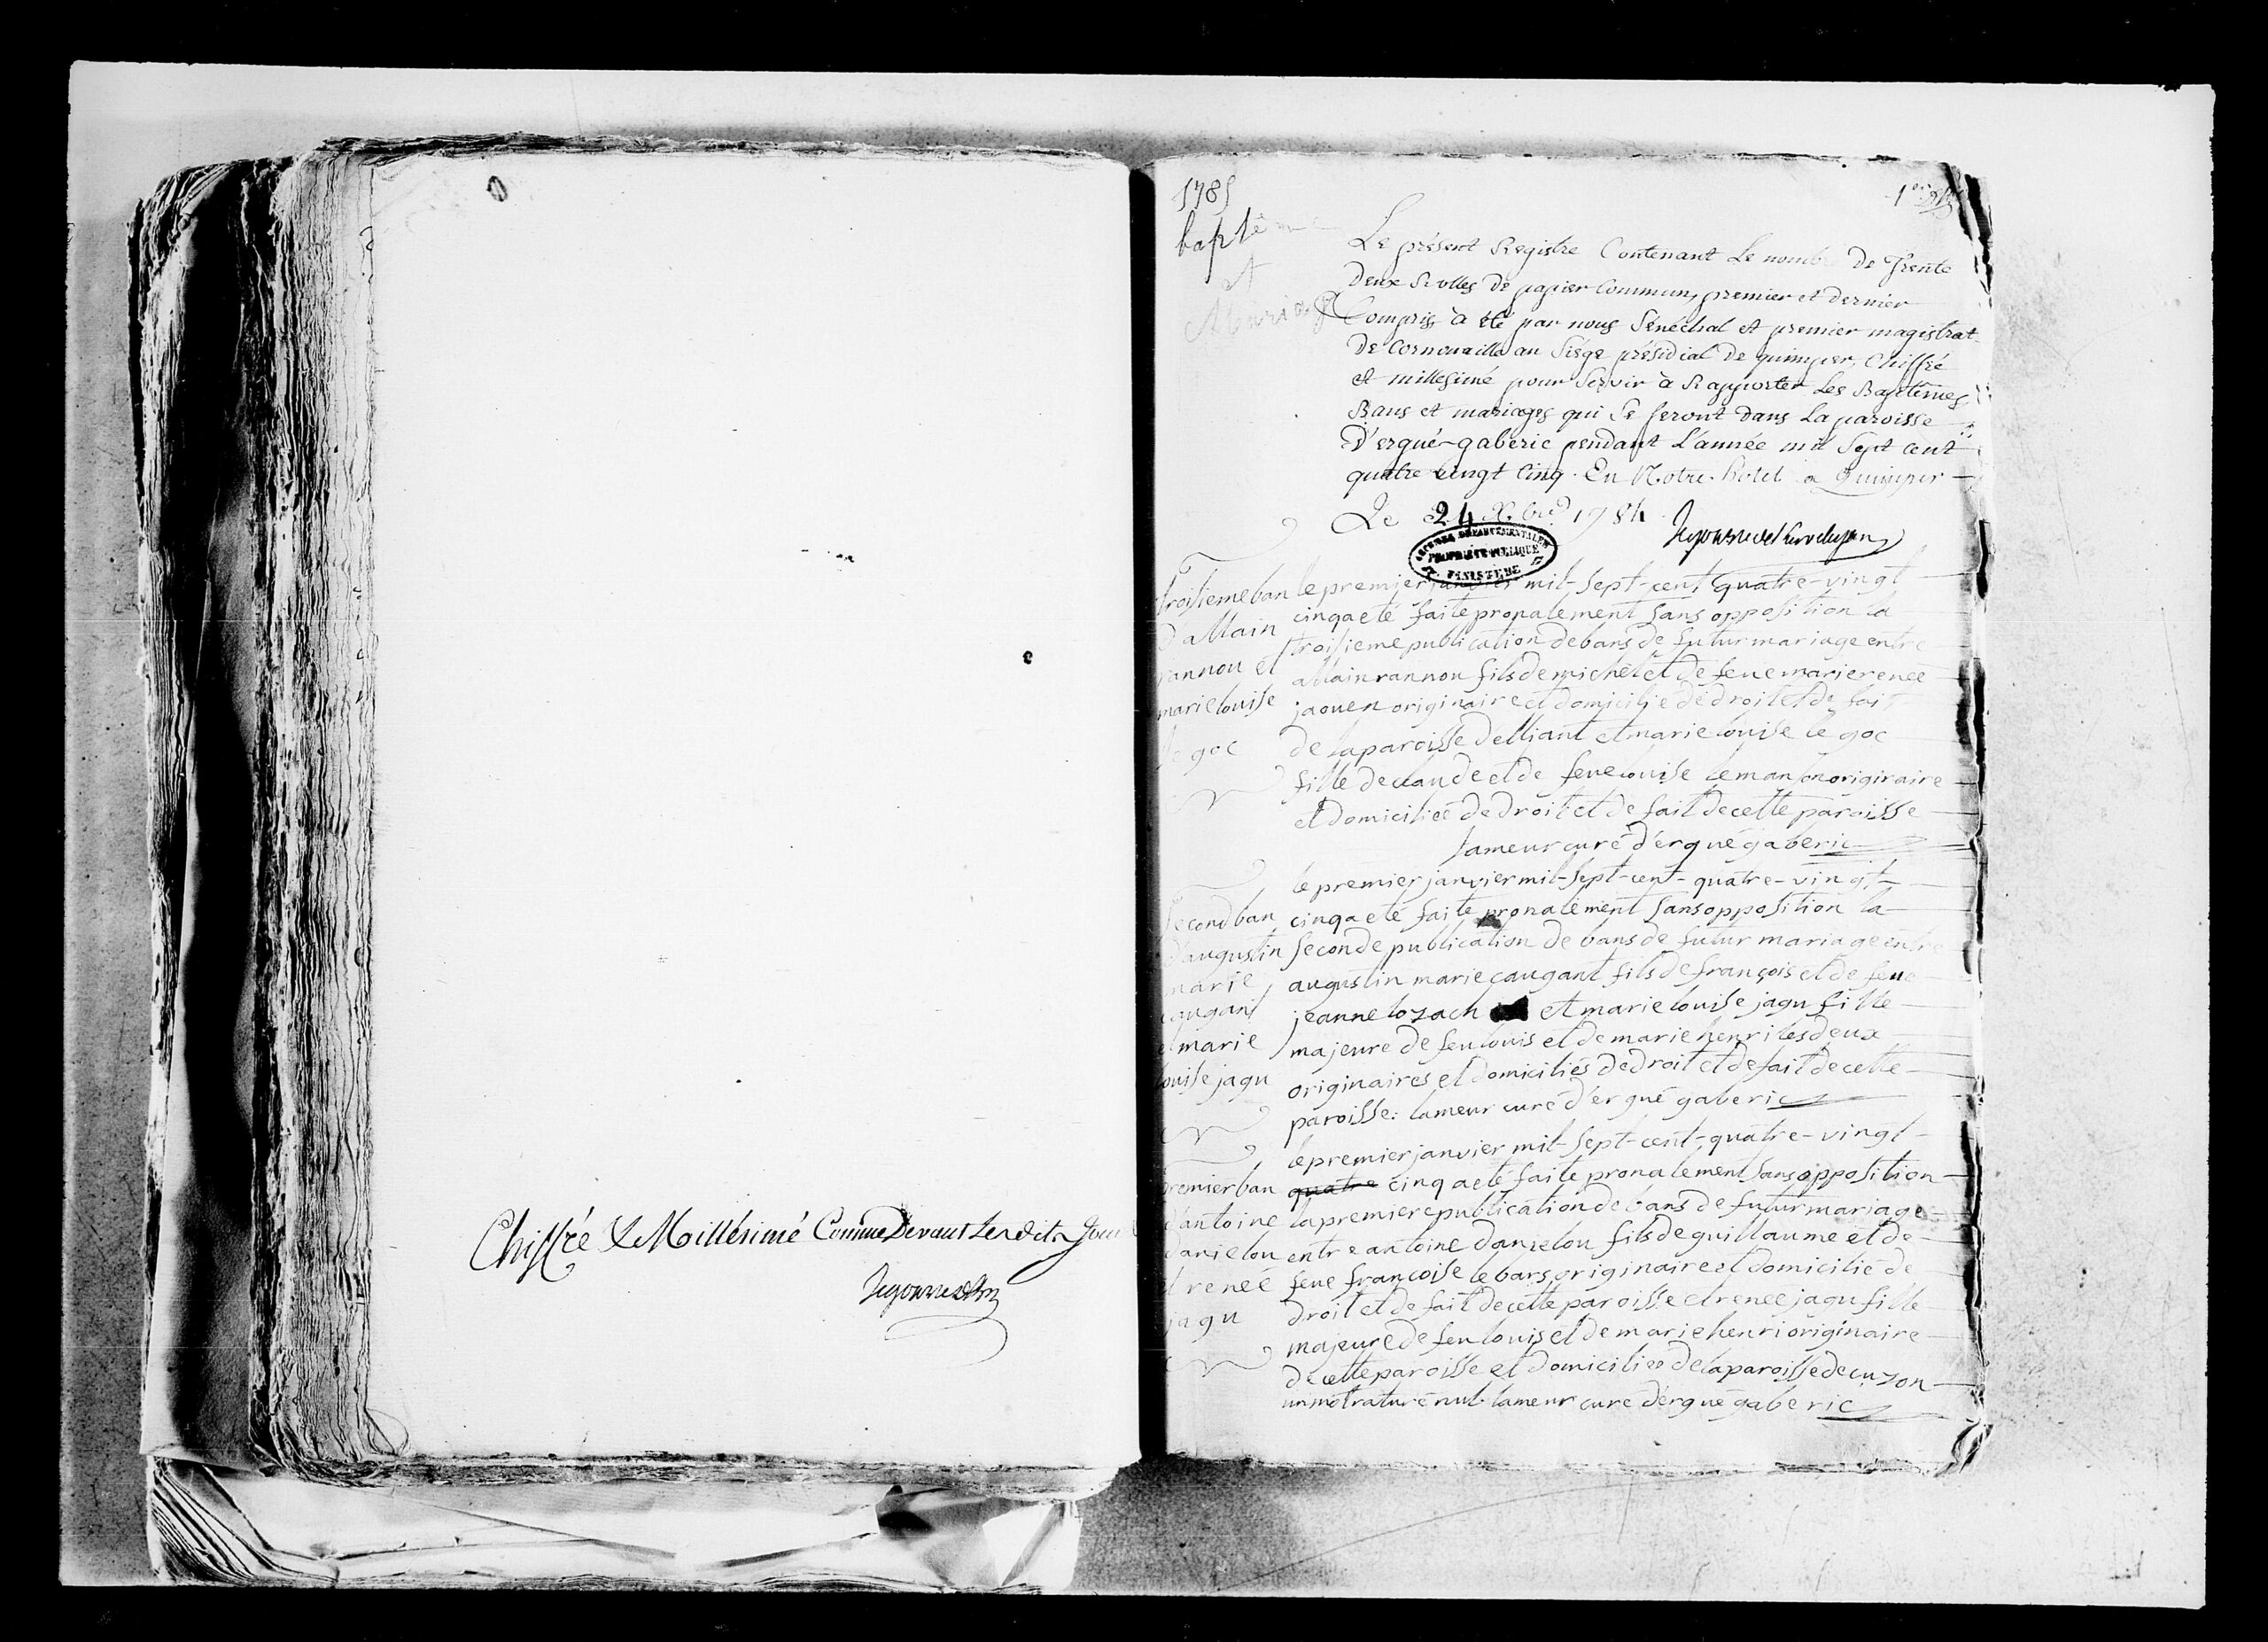 Chiffré & Millésimé Comme Devant Lesdits Jour
1785
1er
baptême
et
Mariage
Le présent Registre Contenant Le nombre De Trente
Deux Rolles De papier Commun, premier et dernier
Compris, à été par nous Sénéchal et premier magistrat
De Cornouaille au Siége présidial De quimper, Chiffré
et millesimé pour Servir à Rapporter Les Baptêmes
Bans et mariages qui Se feront Dans La paroisse
D'ergué-gaberic pendant L'année mil Sept cent
quatre vingt Cinq. En Notre hotel a Quimper
Le 24 Xbre 1784
ARCHIVES DÉPARTEMENTALES
PROPRIÉTÉ PUBLIQUE
FINISTÈRE
troisieme ban
d'allain
rannou et
marie louise
le goc
le premier janvier mil-sept-cent quatre-vingt
cinq a eté faite pronalement sans opposition la
troisieme publication de bans de futur mariage entre
allain rannou fils de michel et de feue marie renée
jaouen originaire et domicilié de droit et de fait
de la paroisse d'elliant et marie louise le goc
fille de claude et de feue louise le manson originaire
et domiciliée de droit et de fait de cette paroisse
lameur curé d'érgué gaberic
second ban
d'augustin
marie
caugant
et marie
louise jagu
le premier janvier mil-sept-cent-quatre-vingt-
cinq a eté faite pronalement sans opposition la
seconde publication de bans de futur mariage entre
augustin marie caugant fils de françois et de feue
jeanne lozach et marie louise jagu fille
majeure de feu louis et de marie henri les deux
originaires et domiciliés de droit et de fait de cette
paroisse: lameur curé d'érgué gaberic
premier ban
d'antoine
danielou
et renée
jagu
le premier janvier mil-sept-cent-quatre-vingt-
quatre cinq a eté faite pronalement sans opposition
la premiere publication de bans de futur mariage
entre antoine danielou fils de guillaume et de
feue françoise le bars originaire et domicilié de
droit et de fait de cette paroisse et renée jagu fille
majeure de feu louis et de marie henri originaire
de cette paroisse et domiciliée de la paroisse de cuzon
un mot raturé nul. lameur curé d'érgué gaberic